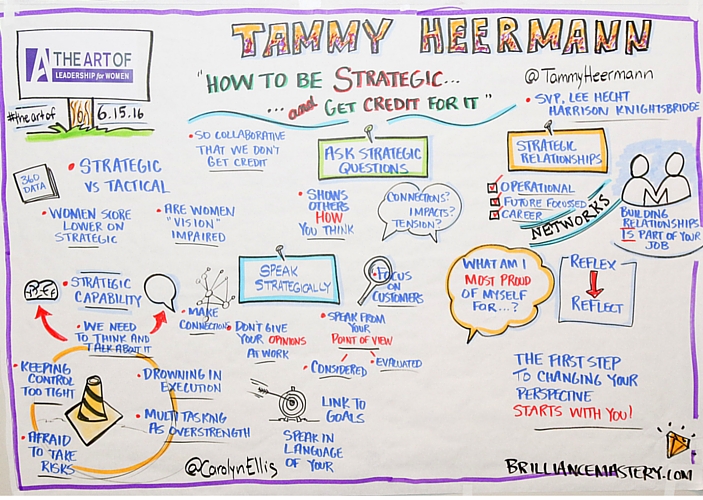 TAMMY HEERMANN
A THE ART OF
LEADERSHIP for WOMEN
#theartof 6.15.16
"HOW TO BE STRATEGIC...
... and GET CREDIT FOR IT"
@TammyHeermann
• SVP. LEE HECHT
HARRISON KNIGHTSBRIDGE
• SO COLLABORATIVE
THAT WE DON'T
GET CREDIT
360
DATA
• STRATEGIC
VS TACTICAL
• WOMEN SCORE
LOWER ON
STRATEGIC
• ARE WOMEN
"VISION"
IMPAIRED
ASK STRATEGIC
QUESTIONS
• SHOWS
OTHERS
HOW
YOU THINK
CONNECTIONS?
IMPACTS?
TENSION?
STRATEGIC
RELATIONSHIPS
OPERATIONAL
FUTURE FOCUSSED
CAREER
NETWORKS
BUILDING
RELATIONSHIPS
IS PART OF YOUR
JOB
• STRATEGIC
CAPABILITY
• WE NEED
TO THINK AND
TALK ABOUT IT
SPEAK
STRATEGICALLY
• MAKE
CONNECTION
• DON'T GIVE
YOUR OPINIONS
AT WORK
• FOCUS
ON
CUSTOMERS
• SPEAK FROM
YOUR
POINT OF VIEW
• CONSIDERED
• EVALUATED
WHAT AM I
MOST PROUD
OF MYSELF
FOR...?
REFLEX
REFLECT
• KEEPING
CONTROL
TOO TIGHT
• DROWNING IN
EXECUTION
• MULTI TASKING
AS OVERSTRENGTH
• AFRAID
TO TAKE
RISKS
LINK TO
GOALS
SPEAK IN
LANGUAGE
OF YOUR
THE FIRST STEP
TO CHANGING YOUR
PERSPECTIVE
STARTS WITH YOU!
@CarolynEllis
BRILLIANCEMASTERY.COM